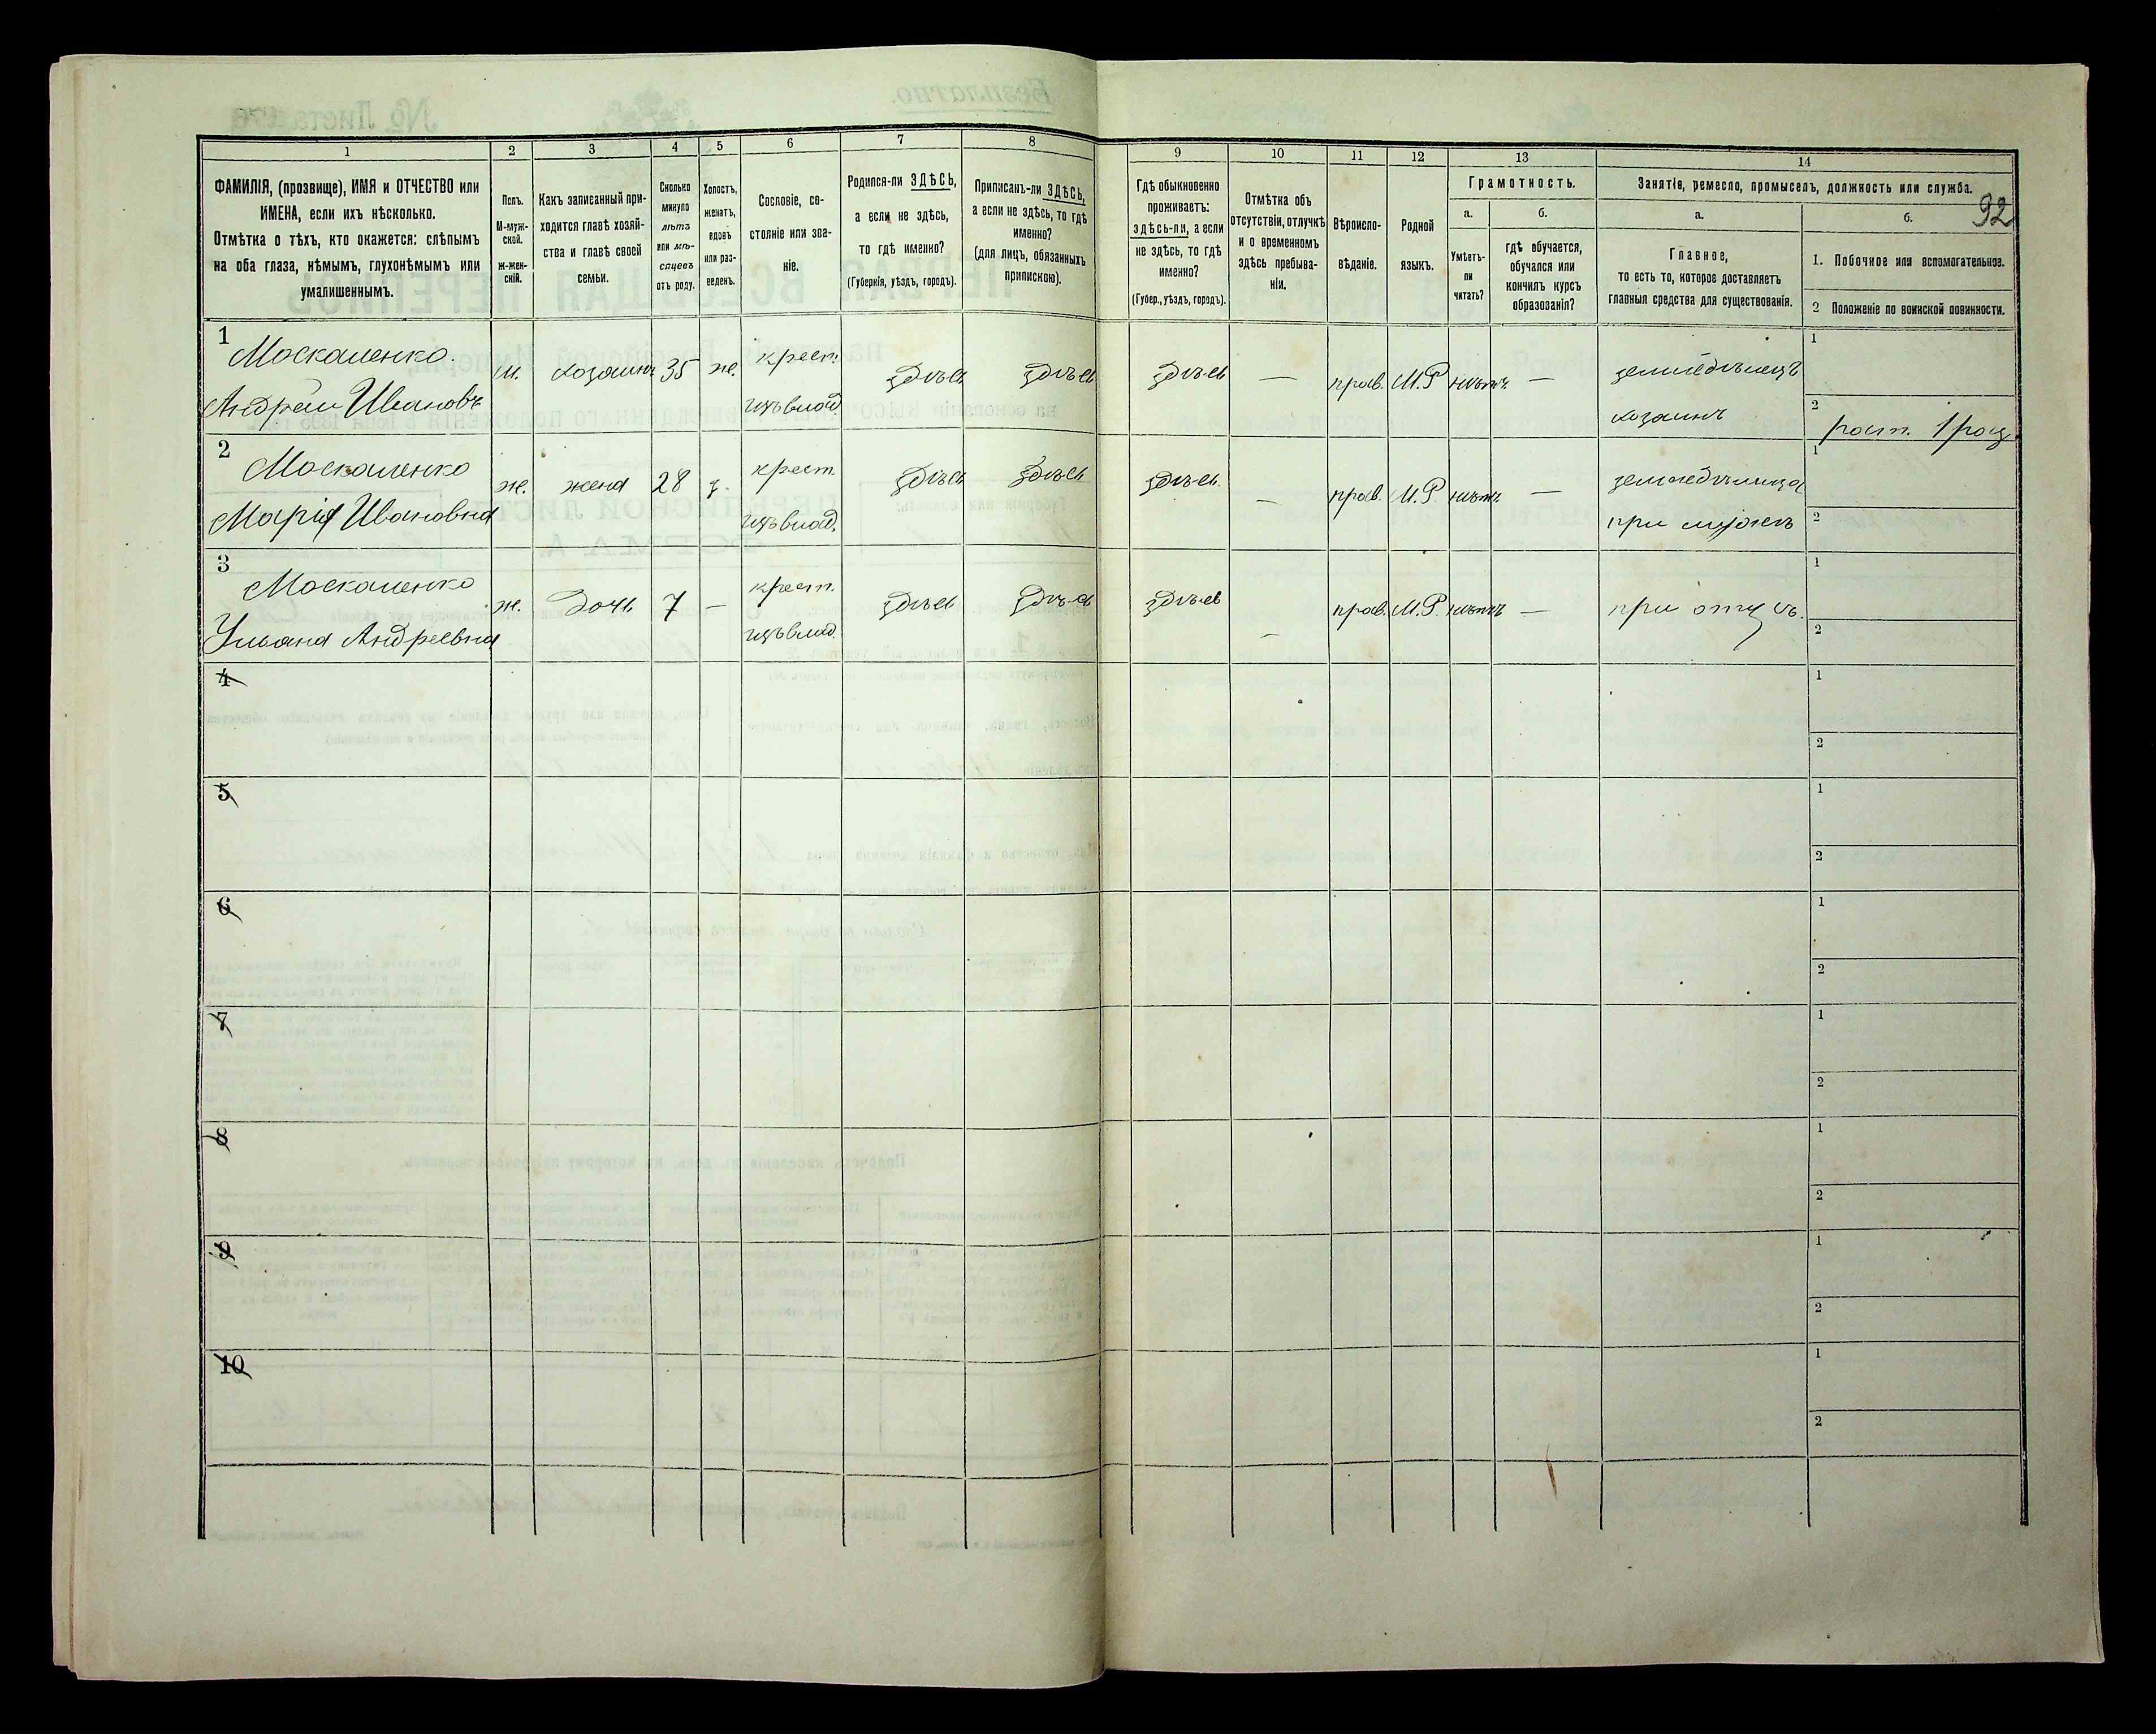 1 2 3 4 5 6 7 8 9 10 11 12 13 14
ФАМИЛІЯ, (прозвище), ИМЯ и ОТЧЕСТВО или
ИМЕНА, если ихъ нѣсколько.
Отмѣтка о тѣхъ, кто окажется: слѣпымъ
на оба глаза, нѣмымъ, глухонѣмымъ или
умалишеннымъ.
Полъ.
М-муж-
ской.
ж-жен-
скій.
Какъ записанный при-
ходится главѣ хозяй-
ства и главѣ своей
семьи.
Сколько
минуло
лѣтъ
или мѣ-
сяцевъ
отъ роду.
Холостъ,
женатъ,
вдовъ
или раз-
веденъ.
Сословіе, со-
стояніе или зва-
ніе.
Родился-ли ЗДѢСЬ,
а если не здѣсь,
то гдѣ именно?
(Губернія, уѣздъ, городъ).
Приписанъ-ли ЗДѢСЬ,
а если не здѣсь, то гдѣ
именно?
(для лицъ, обязанныхъ
припискою).
Гдѣ обыкновенно
проживаетъ:
здѣсь-ли, а если
не здѣсь, то гдѣ
именно?
(Губер., уѣздъ, городъ).
Отмѣтка объ
отсутствіи, отлучкѣ
и о временномъ
здѣсь пребыва-
ніи.
Вѣроиспо-
вѣданіе.
Родной
языкъ.
Грамотность.
а.
Умѣетъ-
ли
читать?
б.
гдѣ обучается,
обучался или
кончилъ курсъ
образованія?
Занятіе, ремесло, промыселъ, должность или служба.
92
а.
Главное,
то есть то, которое доставляетъ
главныя средства для существованія.
б.
1. Побочное или вспомогательное.
2 Положеніе по воинской повинности.
1
Москаленко.
Андрей Ивановъ
м.
хозяинъ
35
ж.
крест.
изъ влад.
здѣсь
здѣсь
здѣсь
—
прав.
М.Р
нѣтъ
—
земледѣлецъ
хозяинъ
1
2
рат. 1 раз.
2
Москаленко
Марія Ивановна
ж.
жена
28
з.
крест.
изъ влад.
здѣсь
здѣсь
здѣсь.
—
прав.
М.Р.
нѣтъ
—
земледѣлица
при мужѣ
1
2
3
Москаленко
Ульяна Андреевна
ж.
дочь
7
—
крест.
изъ влад.
здѣсь
здѣсь
здѣсь
—
прав.
М.Р.
нѣтъ
—
при отцѣ.
1
2
4
1
2
5
1
2
6
1
2
7
1
2
8
1
2
9
1
2
10
1
2